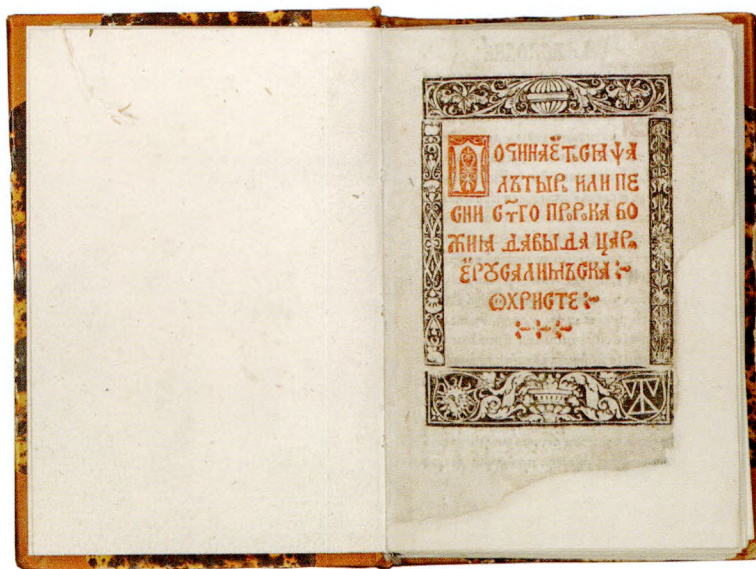 Починаёть сѧ ѱа
лътыр, или пе
сни ст҃го прр҃ка бо
жиѧ давыда цар,
ёрꙋсалимъска ჻
Ѡхристе ჻